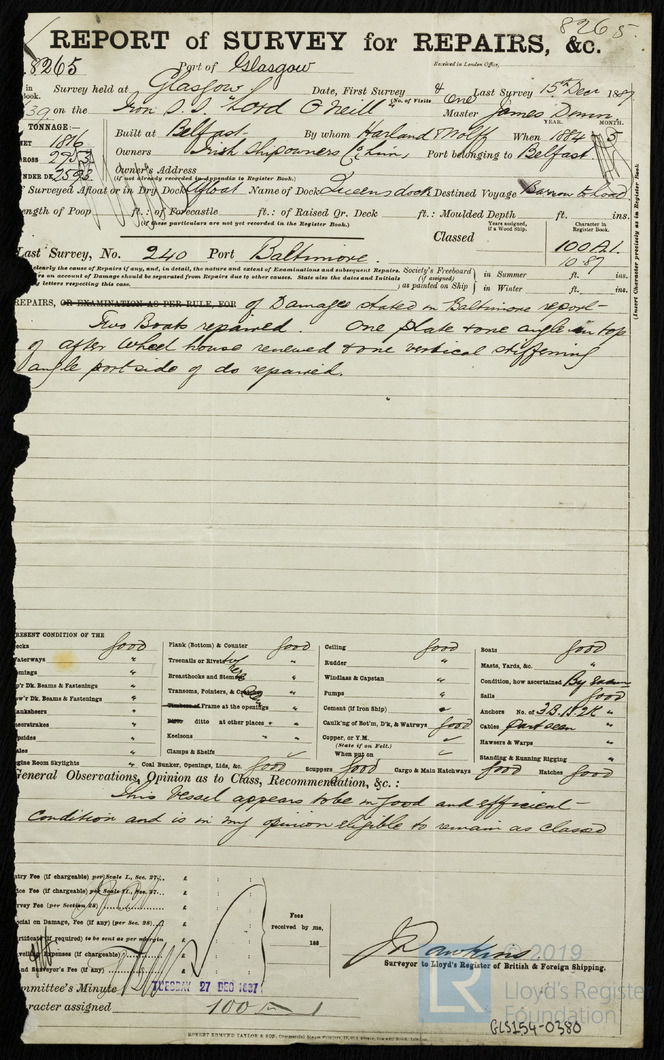 8265
REPORT of SURVEY for REPAIRS, &c.
8265 Port of Glasgow Received in London Office,
Survey held at Glasgow Date, First Survey & Last Survey 15th Dec 1887
39 on the Iron S.S. "Lord O'Neill" (No. of Visits one) Master James Dunn
TONNAGE:— YEAR. MONTH.
1816 Built at Belfast By whom Harland & Wolff When 1884 5
ROSS 2753 Owners Irish Shipowners Co Lim, Port belonging to Belfast
NDER DK 2593 Owner's Address
(if not already recorded in Appendix to Register Book.)
f Surveyed Afloat or in Dry Dock Afloat Name of Dock Queens dock Destined Voyage Barrow to load
ength of Poop ft.: of Forecastle ft.: of Raised Qr. Deck ft.: Moulded Depth ft. ins.
(if these particulars are not yet recorded in the Register Book.)
Years assigned, if a Wood Ship. Character in Register Book.
Classed 100A1.
10.87
(Insert Character precisely as in Register Book
Last Survey, No. 240 Port Baltimore.
clearly the cause of Repairs if any, and, in detail, the nature and extent of Examinations and subsequent Repairs.
rs on account of Damage should be separated from Repairs due to other causes. State also the dates and Initials
letters respecting this case.
Society's Freeboard (if assigned) as painted on Ship in Summer ft. ins.
in Winter ft. ins.
REPAIRS, OR EXAMINATION AS PER RULE, FOR of Damages stated in Baltimore report—
Two Boats repaired. One plate & one angle in top
of after wheel house renewed & one vertical stiffening
angle port side of do repaired.
RESENT CONDITION OF THE
ecks Good
aterways "
"
p'r Dk. Beams & Fastenings "
ow'r Dk. Beams & Fastenings "
lanksheers "
heerstrakes "
opsides "
ales "
ngine Room Skylights "
Plank (Bottom) & Counter Good
Treenails or Rivets "
Breasthooks and Stemson "
Transoms, Pointers, & "
Frame at the openings
ditto at other places "
Keelsons "
Clamps & Shelfs
Coal Bunker, Openings, Lids, &c. Good
Ceiling Good
Rudder "
Windlass & Capstan "
Pumps "
Cement (if Iron Ship) "
Caulk'ng of Bot'm, D'k, & Watrwys Good
Copper, or Y.M.
(State if on Felt.)
When put on
Scuppers Good Cargo & Main Hatchways Good Hatches Good
Boats Good
Masts, Yards, &c. "
Condition, how ascertained By Exam
Sails Good
Anchors No. of 3B. 1S. 2K "
Cables Part seen
Hawsers & Warps "
Standing & Running Rigging "
General Observations, Opinion as to Class, Recommendation, &c. :
This Vessel appears to be in good and efficient—
Condition and is in my opinion eligible to remain as classed
ntry Fee (if chargeable) per Scale I., Sec. 27... £
ice Fee (if chargeable) per Scale II., Sec. 27... £
rvey Fee (per Section 28) £
ecial on Damage, Fee (if any) (per Sec. 28). £
ertificate (if required) to be sent as per margin
velling Expenses (if chargeable) £
nd Surveyor's Fee (if any) £
Fees received by me,
188
J Dawkins
Surveyor to Lloyd's Register of British & Foreign Shipping.
ommittee's Minute TUESDAY 27 DEC 1887
haracter assigned 100 A 1
© 2019
LR
Lloyd's Register
Foundation
GLS154-0380